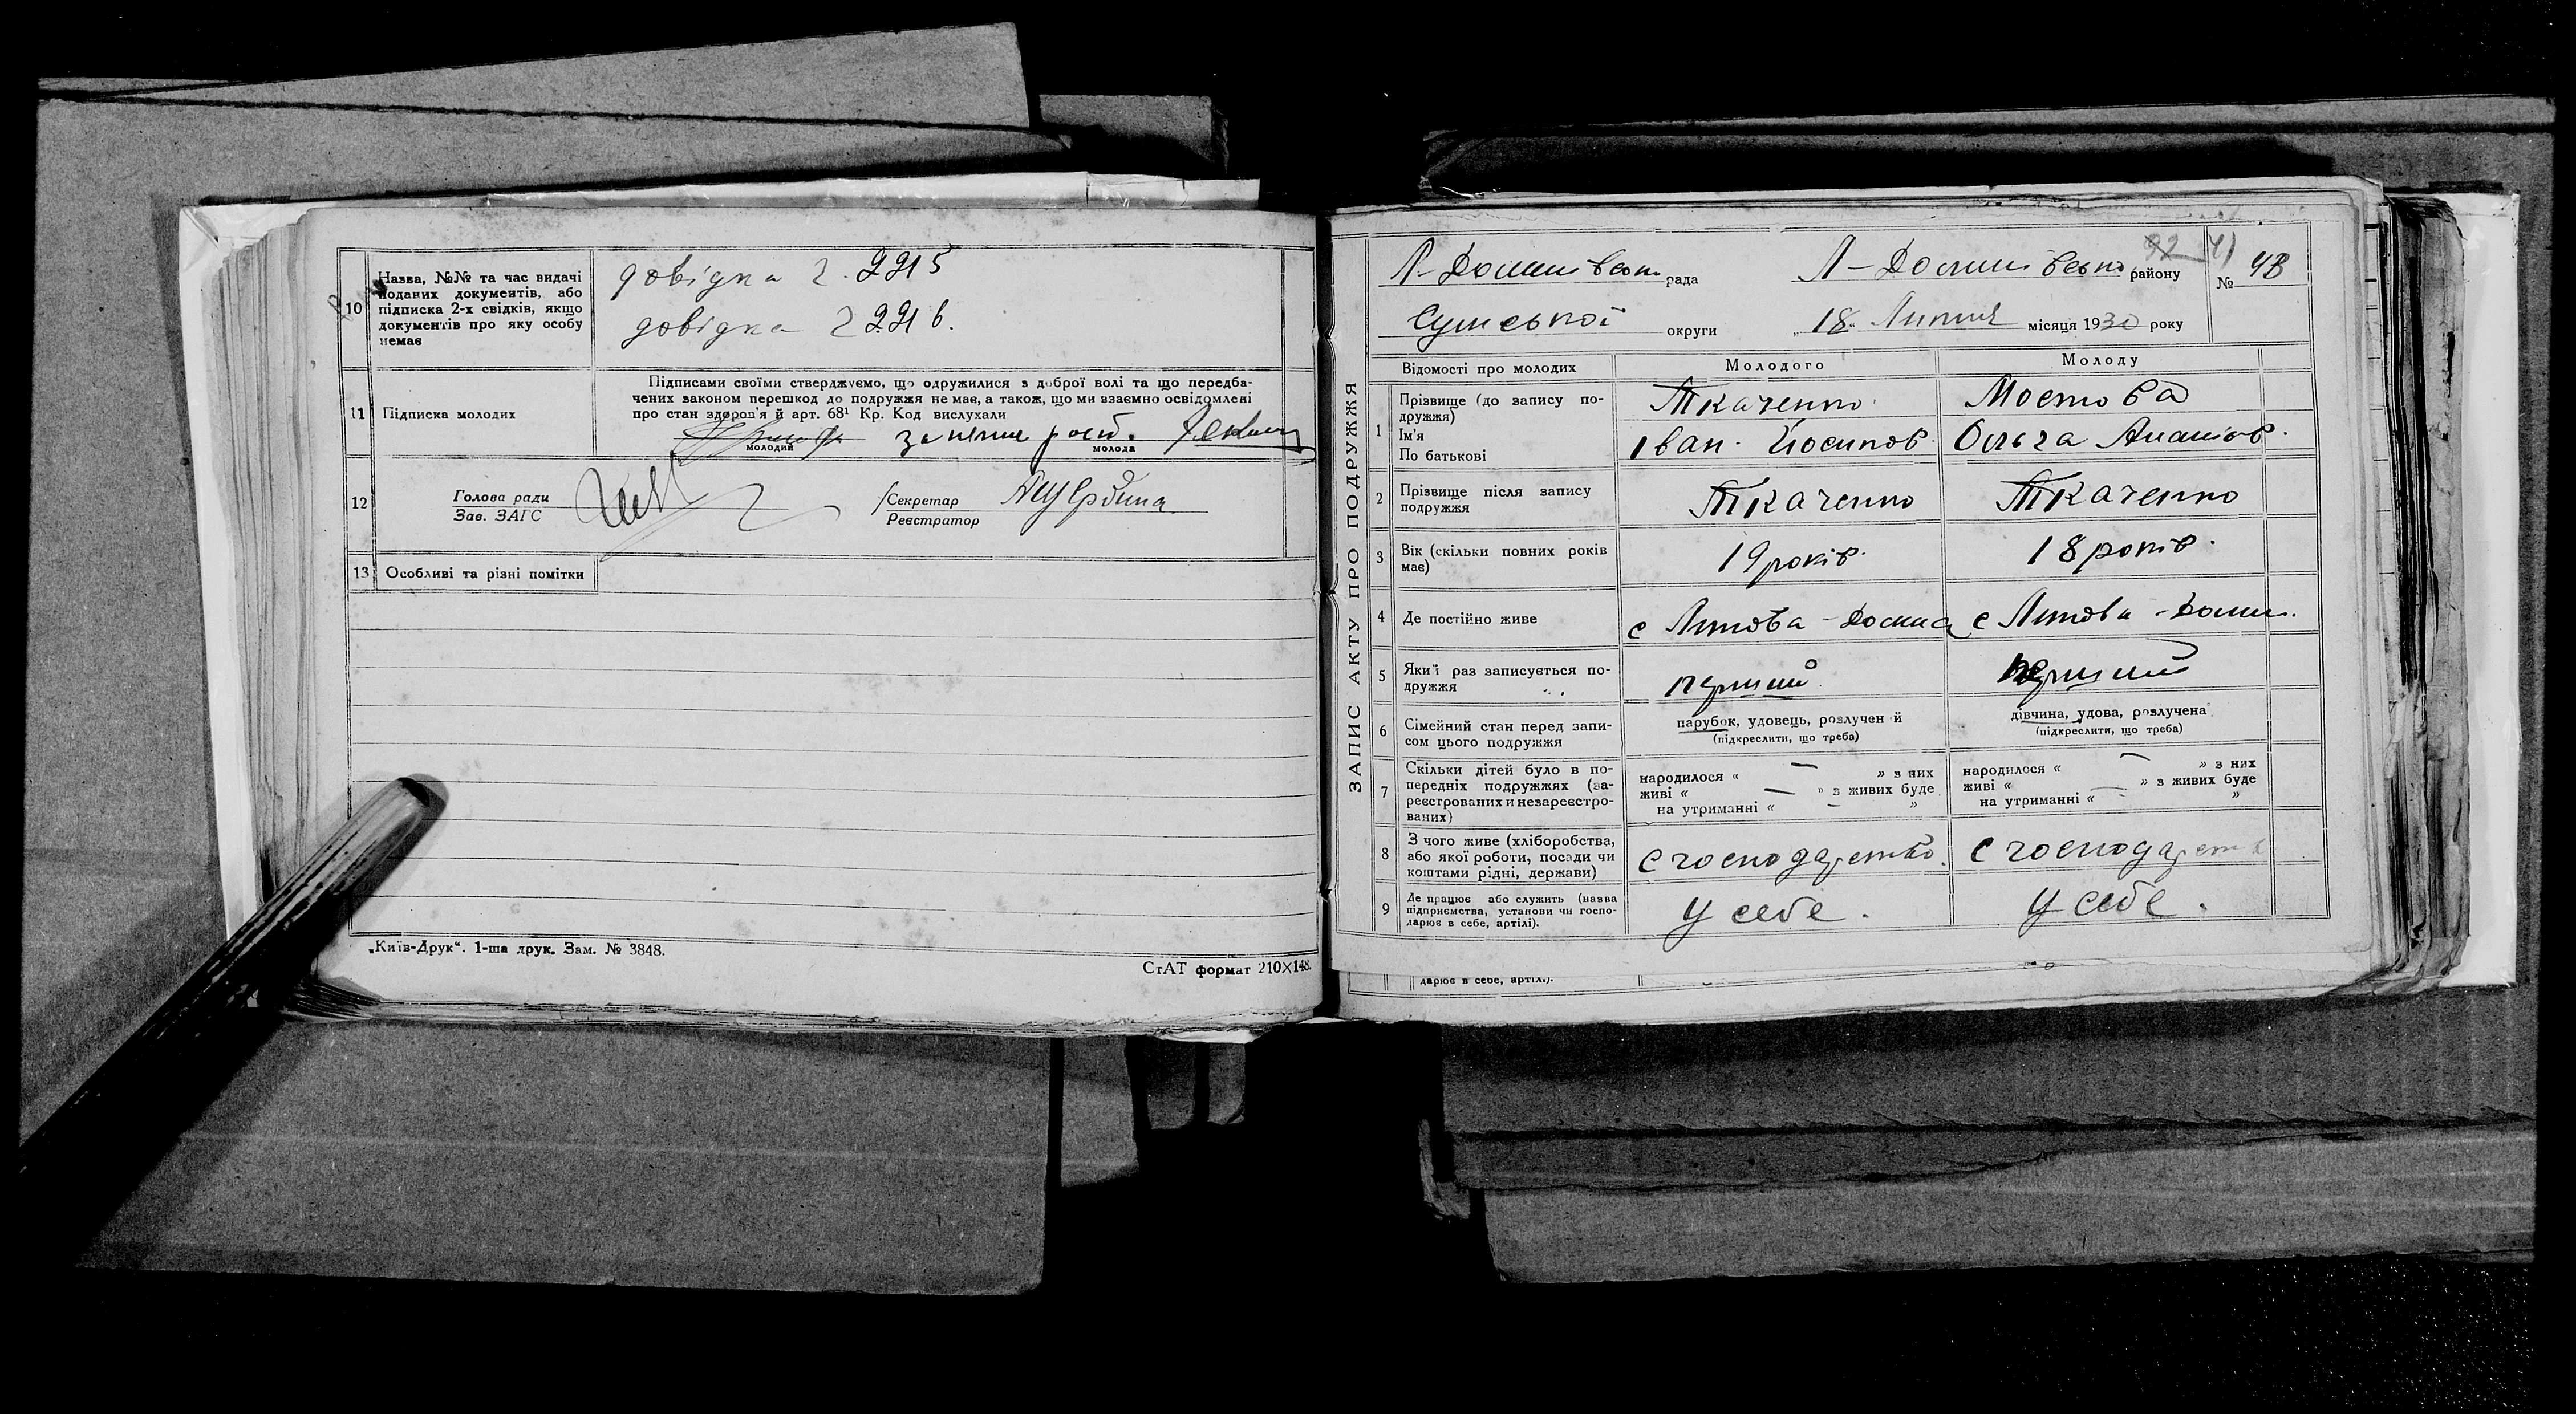 10
Назва, №№ та час видачі
поданих документів, або
підписка 2-х свідків, якщо
документів про яку особу
немає
довідка 2215
довідка 2216.
11
Підписка молодих
Підписами своїми стверджуємо, що одружилися з доброї волі та що передба-
чених законом перешкод до подружжя немає, а також, що ми взаємно освідомлені
про стан здоров'я й арт. 68¹ Кр. Код вислухали
молодий
молода
12
Голова ради
Зав. ЗАГС
Секретар
Реєстратор
13
Особливі та різні помітки
„Київ-Друк“. 1-ша друк. Зам. № 3848.
СтАТ формат 210×148.
ЗАПИС АКТУ ПРО ПОДРУЖЖЯ
рада
району
№ 48
Сумської округи
„18“ Липня місяця 1930 року
Відомості про молодих
Молодого
Молоду
1
Прізвище (до запису по-
дружжя)
Ім'я
По батькові
Ткаченко
Іван Йосипов.
Мостова
Ольга Ананіов.
2
Прізвище після запису
подружжя
Ткаченко
Ткаченко
3
Вік (скільки повних років
має)
19 років.
18 років.
4
Де постійно живе
с Липова-
с Липова-
5
Який раз записується по-
дружжя
перший
перший
6
Сімейний стан перед запи-
сом цього подружжя
парубок, удовець, розлучен й
(підкреслити, що треба)
дівчина, удова, розлучена
(підкреслити, що треба)
7
Скільки дітей було в по-
передніх подружжях (за-
реєстрованих и незареєстро-
ваних)
народилося « — » з них
живі « — » з живих буде
на утриманні « – »
народилося « — » з них
живі « — » з живих буде
на утриманні « - »
8
З чого живе (хліборобства,
або якої роботи, посади чи
коштами рідні, держави)
с господарство.
с господарств
9
Де працює або служить (назва
підприємства, установи чи госпо-
дарює в себе, артілі).
у себе.
у себе.
дарює в себе, артілі).